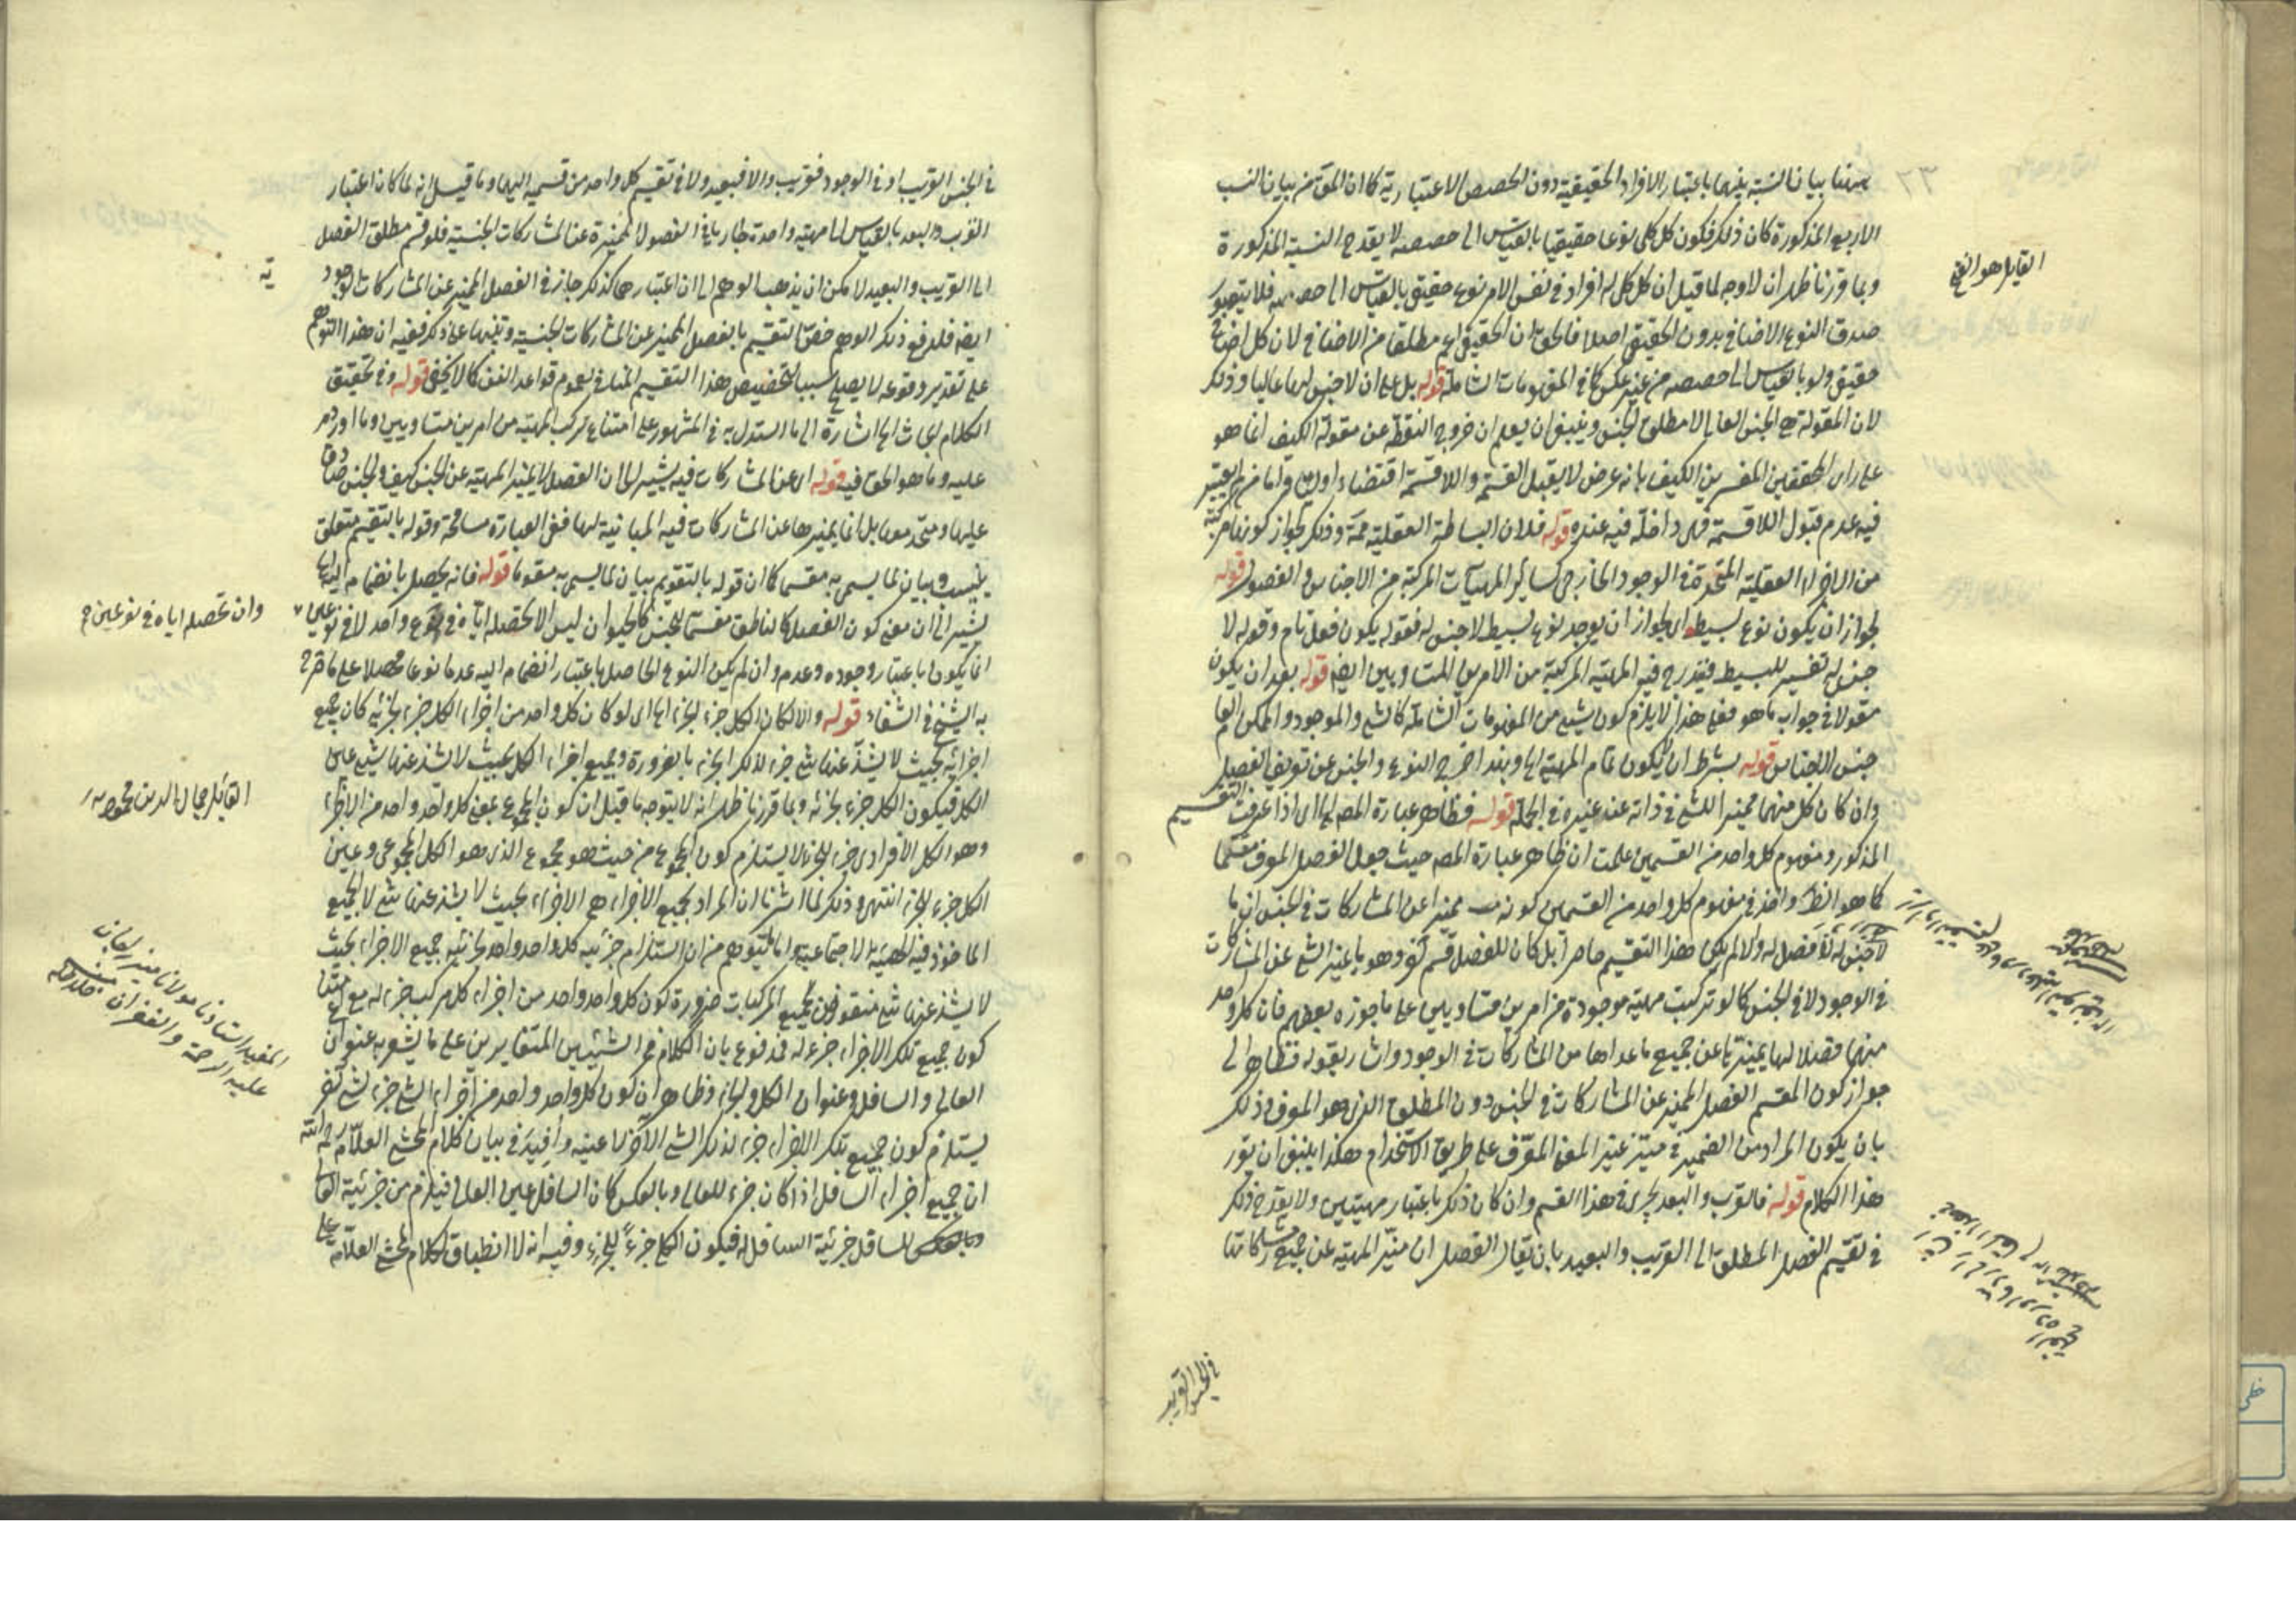 ٢٣
ههنا بيان النسبة بينهما باعتبار الافراد الحقيقية دون الحصص الاعتبارية كما ان الحق من بيان النسب
الاربع المذكورة كان ذلك فكون كل كلى نوعا حقيقيا بالقياس الى حصصه لا يقدح النسبة المذكورة
وبما قررنا ظهر ان لا وجه لما قيل ان كل كلى له افراد فى نفس الامر نوع حقيقى بالقياس الى حصصه فلا يتصور
القايل هو الفتح
صدق النوع الاضافى بدون الحقيقى اصلا فالحق ان الحقيقى اعم مطلقا من الاضافى لان كل اضافى
حقيقى ولو بالقياس الى حصصه من غير عكس كما فى المفهومات الشاملة قوله بل على ان لا جنس لها عاليا وذلك
لان المقولة هى الجنس العالى لا مطلق الجنس وينبغى ان يعلم ان خروج النقطة عن مقولة الكيف انما هو
على راى المحققين المفسرين الكيف بانه عرض لا يقبل القسمة واللاقسمة اقتضاء اوليا واما من لم يعتبر
فيه عدم قبول اللاقسمة فهى داخلة فيه عنده قوله فلان البساطة العقلية ممة وذلك لجواز كونها مركبة
من الاجزاء العقلية المتحدة فى الوجود الخارجى كسائر المهيات المركبة من الاجناس والفصول قوله
لجواز ان يكون نوع بسيط اى لجواز ان يوجد نوع بسيط لا جنس له فقوله يكون فعل تام وقوله لا
جنس له تفسير للبسيط فيندرج فيه المهية المركبة من الامرين المتساويين ايضا قوله بعد ان يكون
مقولا فى جواب ما هو فعلى هذا لا يلزم كون شيئ من المفهومات الشاملة كالشئ والموجود والممكن العام
جنس الاجناس قوله بشرط ان لا يكون تمام المهية اه وبهذا خرج النوع والجنس عن تعريف الفصل
وان كان كل منهما مميزا للشئ فى ذاته عن غيره فى الجملة قوله فظاهر عبارة المصـ اه اى اذا عرفت التقسيم
المذكور ومفهوم كل واحد من القسمين علمت ان ظاهر عبارة المصـ حيث جعل الفصل المعرف مقسما
كما هو الظ واخذ فى مفهوم كل واحد من القسمين كونه مميزا عن المشاركات فى الجنس ان ما
لا جنس له لا فصل له والا لم يكن هذا التقسيم حاصرا بل كان للفصل قسم آخر وهو ما يميز الشئ عن المشاركات
فى الوجود لا فى الجنس كما لو تركبت مهية موجودة من امرين متساويين على ما جوزه بعضهم فان كل واحد
منهما فصل لها يميزها عن جميع ما عداها من المشاركات فى الوجود واشار بقوله فظاهر الى
جواز كون المقسم الفصل المميز عن المشاركات فى الجنس دون المطلق الذى هو المعرف وذلك
بان يكون المراد من الضمير فى ميّز غير المعنى المعرّف على طريق الاستخدام هكذا ينبغى ان يقرر
هذا الكلام قوله فالقرب والبعد يجرى فى هذا القسم وان كان ذلك باعتبار مهيتين ولا يقدح ذلك
فى تقسيم الفصل المطلق الى القريب والبعيد بان يقال الفصل ان ميّز المهية عن جميع مشاركاتها
فى الجنس القريب
فى الجنس القريب او فى الوجود فقريب والا فبعيد ولا فى تقسيم كل واحد من قسميه اليهما وما قيل انه لما كان اعتبار
القرب والبعد بالقياس الى مهية واحدة جاريا فى الفصول المميزة عن المشاركات الجنسية فلو قسم مطلق الفصل
الى القريب والبعيد لامكن ان يذهب الوهم الى ان اعتبارهما كذلك جاز فى الفصل المميز عن المشاركات الوجود
ية
ايضا فلدفع ذلك الوهم خصّ التقسيم بالفصل المميز عن المشاركات الجنسية وتنبيها على ذلك ففيه ان هذا التوهم
على تقدير وقوعه لا يصلح سببا لتخصيص هذا التقسيم المنافى لعموم قواعد الفن كما لا يخفى قوله وفى تحقيق
الكلام ابحاث اه اشارة الى ما استدل به فى المشهور على امتناع تركب المهية من امرين متساويين وما اورد
عليه وما هو الحق فيه قوله اى عن المشاركات فيه يشير الى ان الفصل لا يميز المهية عن الجنس كيف والجنس صادق
عليها ومتحد معها بل انما يميزها عن المشاركات فيه المباينة لها ففى العبارة مسامحة وقوله بالتقسيم متعلق
بينسب وبيان لما يسمى به مقسما كما ان قوله بالتقويم بيان لما يسمى به مقوما قوله فانه يحصل بانضمامه اليها
يشير الى ان معنى كون الفصل كالناطق مقسما للجنس كالحيوان ليس الا تحصله اياه فى نوع واحد لا فى نوعين
وان تحصله اياه فى نوعين
انما يكون باعتبار وجوده وعدمه وان لم يكن النوع الحاصل باعتبار انضمام اليه عدما نوعا محصلا على ما صرح
به الشيخ فى الشفاء قوله والا لكان الكل جزء لجزء اه اى لو كان كل واحد من اجزاء الكل جزء لجزئه كان جميع
اجزائه بحيث لا يشذ عنها شئ جزء لذلك الجزء بالضرورة وجميع اجزاء الكل بحيث لا يشذ عنها شئ عين
الكل فيكون الكل جزء لجزئه وبما قررنا ظهر انه لا يتوجه ما قيل ان كون المجموع بمعنى كل واحد واحد من الاجزاء
القائل جمال الدين محمود
وهو الكل الافرادى جزء للجزء لا يستلزم كون المجموع من حيث هو مجموع الذى هو الكل المجموعى وعين
الكل جزء للجزء انتهى وذلك لما اشرنا ان المراد بجميع الاجزاء هى الاجزاء بحيث لا يشذ عنها شئ لا الجميع
الماخوذ فيه الهيئة الاجتماعية واما التوهم من ان استلزام جزئية كل واحد واحد لجزئية جميع الاجزاء بحيث
لا يشذ عنها شئ منقوض بجميع المركبات ضرورة كون كل واحد واحد من اجزاء كل مركب جزء له مع امتناع
كون جميع تلك الاجزاء جزء له فمدفوع بان الكلام فى الشيئين المتغايرين على ما يشعر به عنوان
استادنا مولانا ميرزاجان
عليه الرحمة والغفران
العالى والسافل وعنوان الكل والجزء وظاهر ان كون كل واحد واحد من اجزاء الشئ جزء لشئ آخر
يستلزم كون جميع تلك الاجزاء جزء لذلك الشئ الآخر لا عينه وأفيد فى بيان كلام المحشى العلّامة رحمه الله
ان جميع اجزاء السافل اذا كان جزء للعالى وبالعكس كان السافل عين العالى فيلزم من جزئية العالى
للسافل جزئية السافل له فيكون الكل جزءً للجزء وفيه انه لا انطباق لكلام المحشى العلّامة على